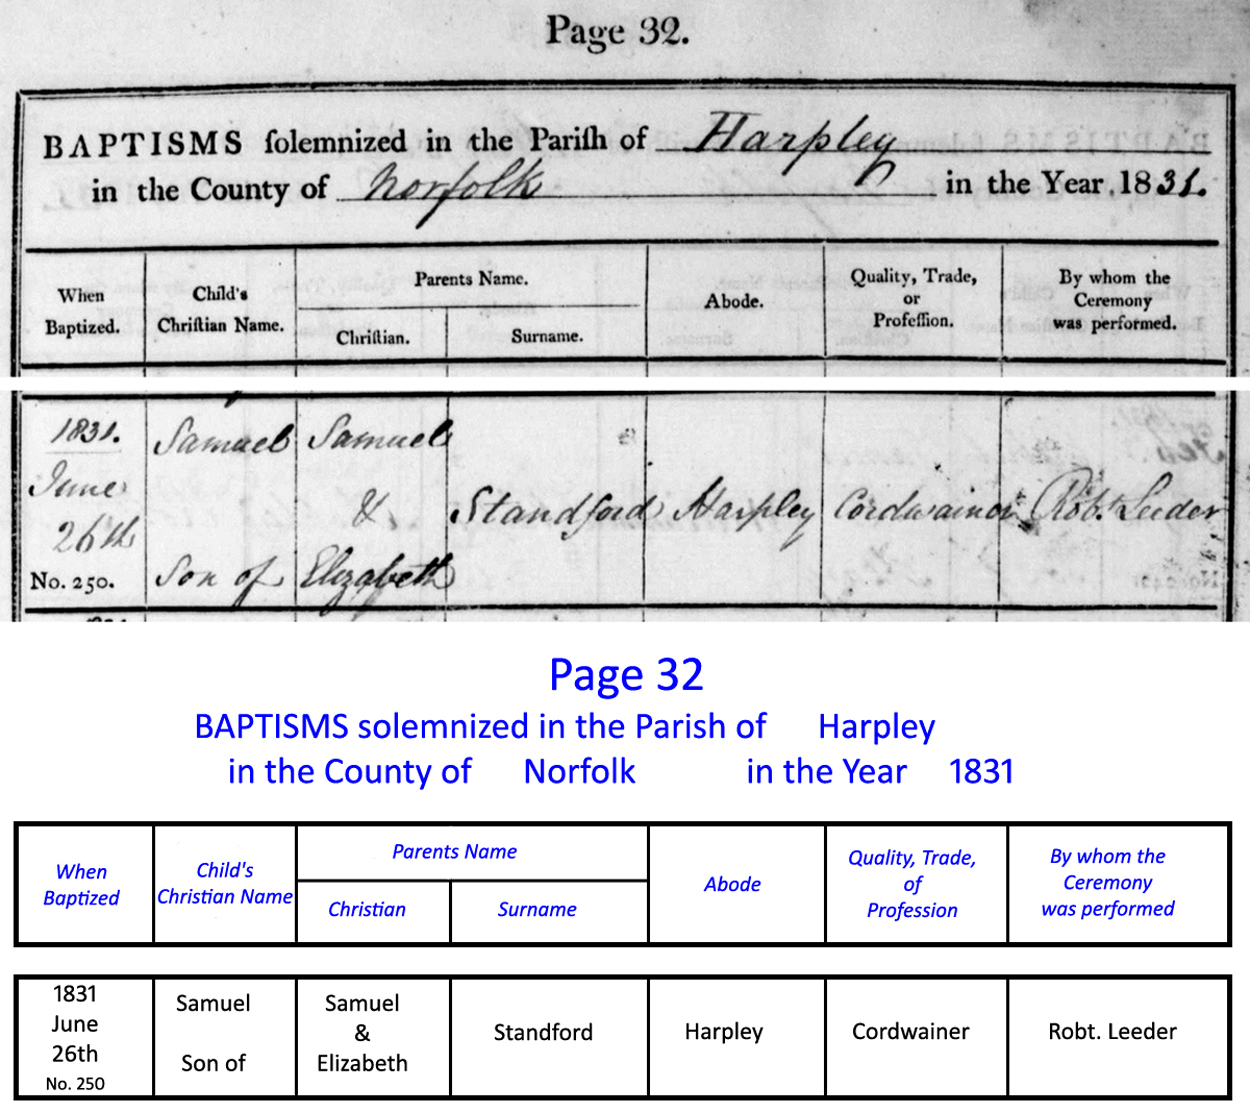 Page 32.
BAPTISMS solemnized in the Parish of Harpley
in the County of Norfolk in the Year 1831.
When Baptized.
Child's Christian Name.
Parents Name.
Christian.
Surname.
Abode.
Quality, Trade, or Profession.
By whom the Ceremony was performed.
1831.
June
26th
No. 250.
Samuel
Son of
Samuel
&
Elizabeth
Standford
Harpley
Cordwainer
Robt. Leeder
Page 32
BAPTISMS solemnized in the Parish of Harpley
in the County of Norfolk in the Year 1831
When
Baptized
Child's
Christian Name
Parents Name
Christian
Surname
Abode
Quality, Trade,
of
Profession
By whom the
Ceremony
was performed
1831
June
26th
No. 250
Samuel
Son of
Samuel
&
Elizabeth
Standford
Harpley
Cordwainer
Robt. Leeder